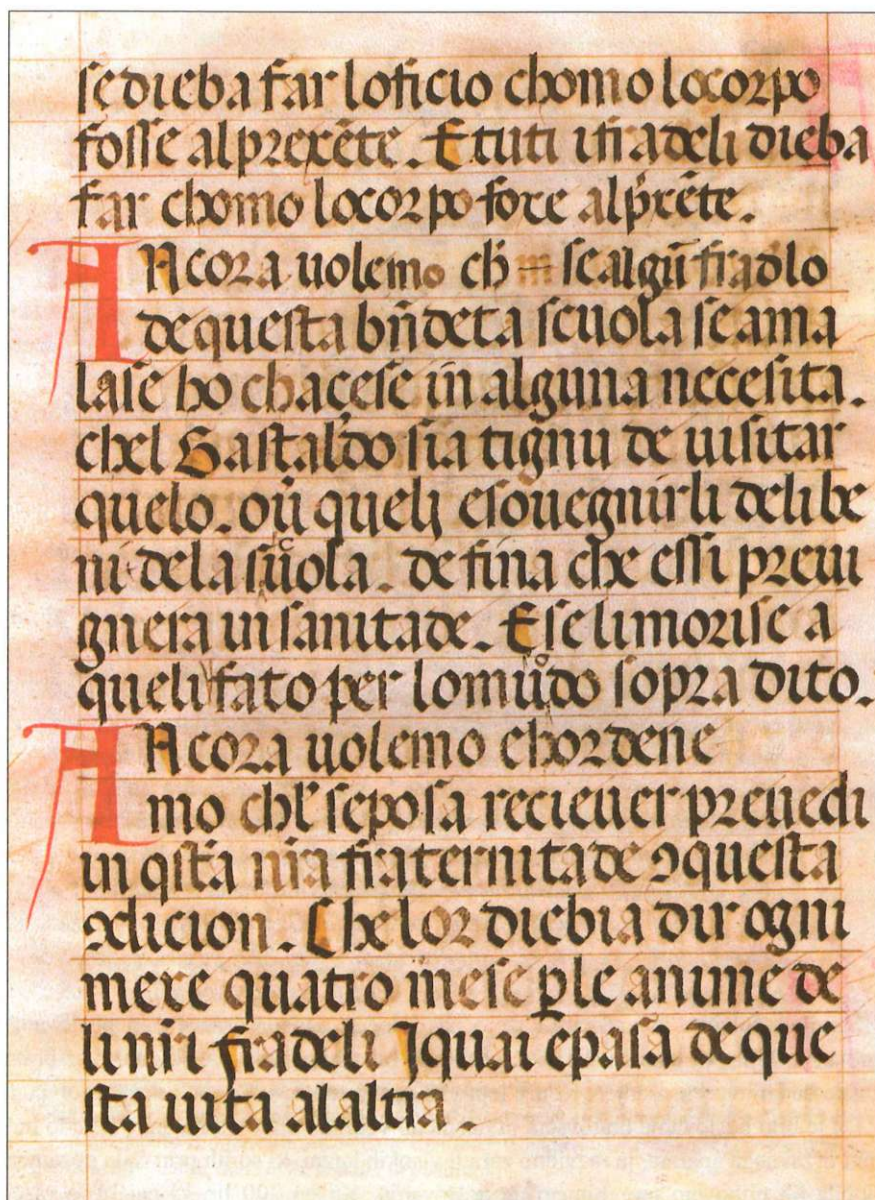 se dieba far loficio chomo lo corpo
fosse al prexēte. E tuti i fradeli dieba
far chomo lo corpo foxe al p̄xēte.
ANcora uolemo ch̄ se algū fradlo
de questa bn̄deta scuola se ama
lase ho chaçese in alguna necesita.
chel Gastaldo sia tignu de uisitar
quelo. oũ queli e souegnirli deli be
ni dela suola. de fina che essi preui
gnera in sanitade. E se li morise a
queli fato per lo mūdo sopra dito.
ANcora uolemo e hordene
mo chl̄ se posa recieuer preuedi
in qsta nr̄a fraternitade ꝯ questa
ꝯdicion. Che lor diebia dir ogni
mexe quatro mese ꝑ le anime de
li nr̄i fradeli I quai e pasa de que
sta uita a laltra.